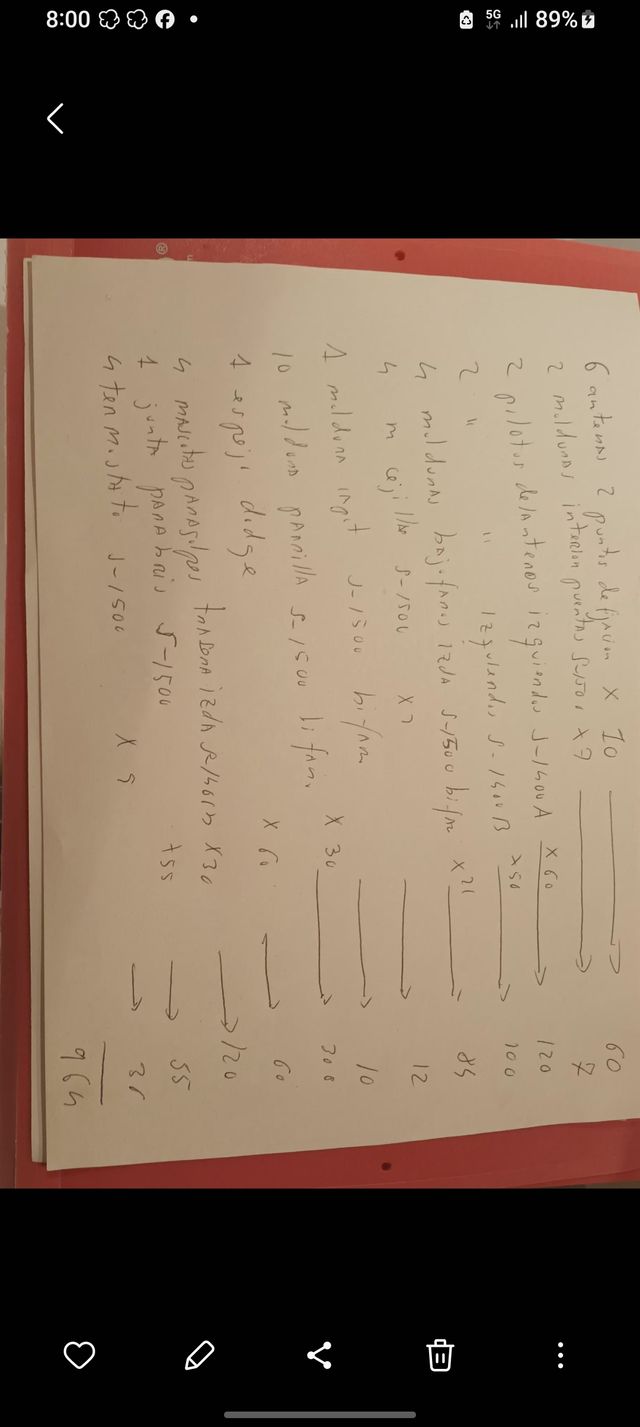 8:00
5G
89%
6 antenas 2 puntos de fijacion x 10 → 60
2 molduras interior puertas S-1500 x 7 → 7
2 pilotos delanteros izquierdos S-1400A x 60 → 120
2 " " izquierdos S-1400B x 50 → 100
4 molduras bajofaros izda S-1500 bifaro x 21 → 84
4 m cejillas S-1500 x 3 → 12
1 moldura S-1500 bifaro → 10
10 moldura parrilla S-1500 bifaro. x 30 → 300
1 espejo dodge x 60 → 60
4 paragolpes izda x 30 → 120
1 junta parabris S-1500 +55 → 55
4 termostato S-1500 x 9 → 36
964